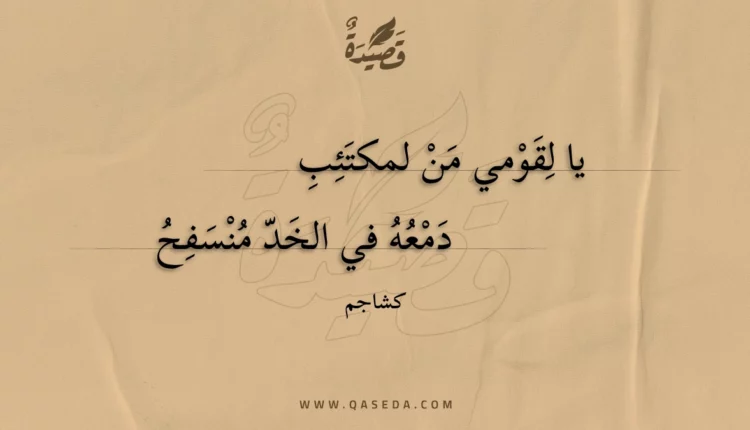 قَصِيدَةٌ
يا لِقَوْمي مَنْ لمكتَئِبِ
دَمْعُهُ في الخَدّ مُنْسَفِحُ
كشاجم
WWW.QASEDA.COM